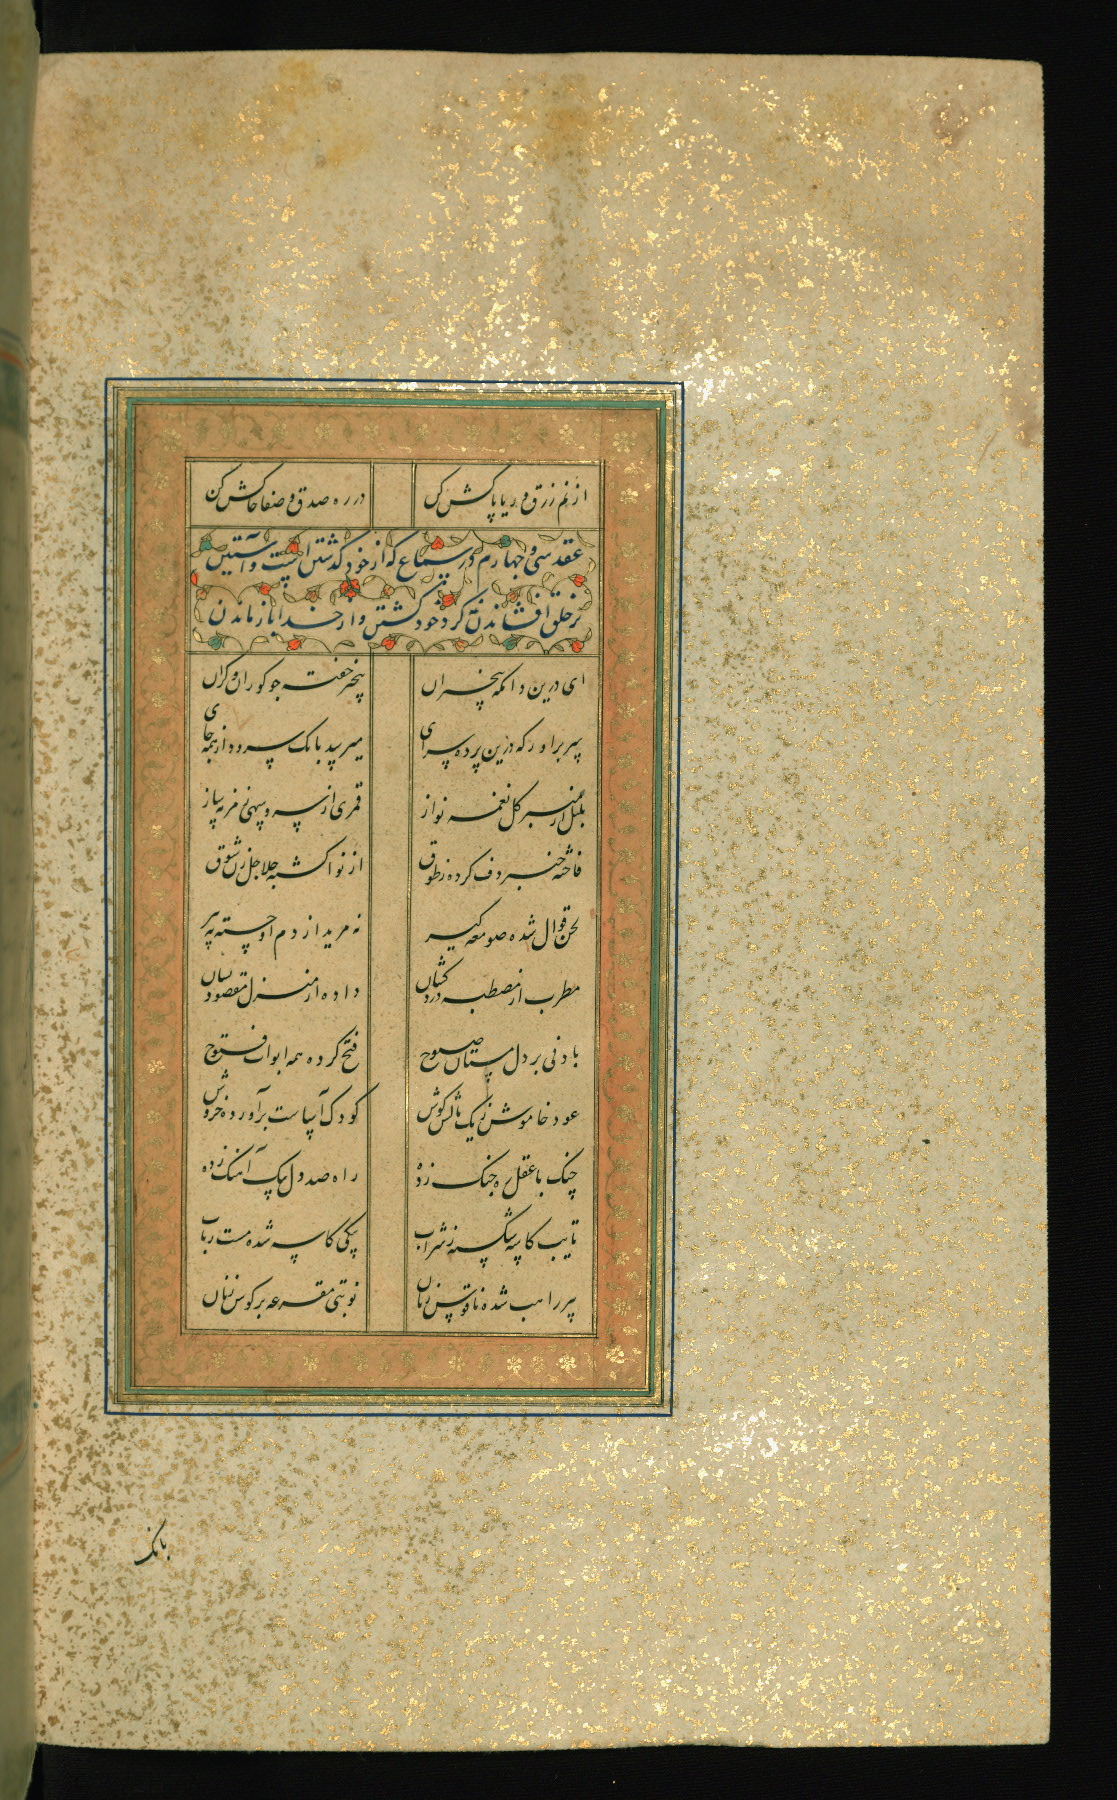 از نم زرق و ریا پاکش کن    در ره صدق و صفا خاکش کن
عقد سی و چهارم در سماع که از خود گذشتن است و آستین
بر خلق افشاندن نه گرد خود گشتن و از خدا باز ماندن
ای درین دامگه بیخبران    بیخبر خفته چو کوران و کران
سر برآور که درین پرده سرای    میرسد بانک سرود از همه جای
بلبل از منبر گل نغمه نواز    قمری از سرو سهی زمزمه ساز
فاخته چنبر دف کرده ز طوق    از نوا گشته جلاجل زن شوق
لحن قوال شده صومعه گیر    نه مرید از دم او جسته نه پیر
مطرب از مصطبه دردکشان    داده از منزل مقصود نشان
باد نی بر دل مستان صبوح    فتح کرده همه ابواب فتوح
عود خاموش ز یک مالش گوش    کودک آساست برآورده خروش
چنک با عقل ره جنک زده    راه صد دل بیک آهنک زده
تایب کاسه شکسته ز شراب    بیکی کاسه شده مست رباب
پیر راهب شده ناقوس زنان    نوبتی مقرعه بر کوس زنان
بانک